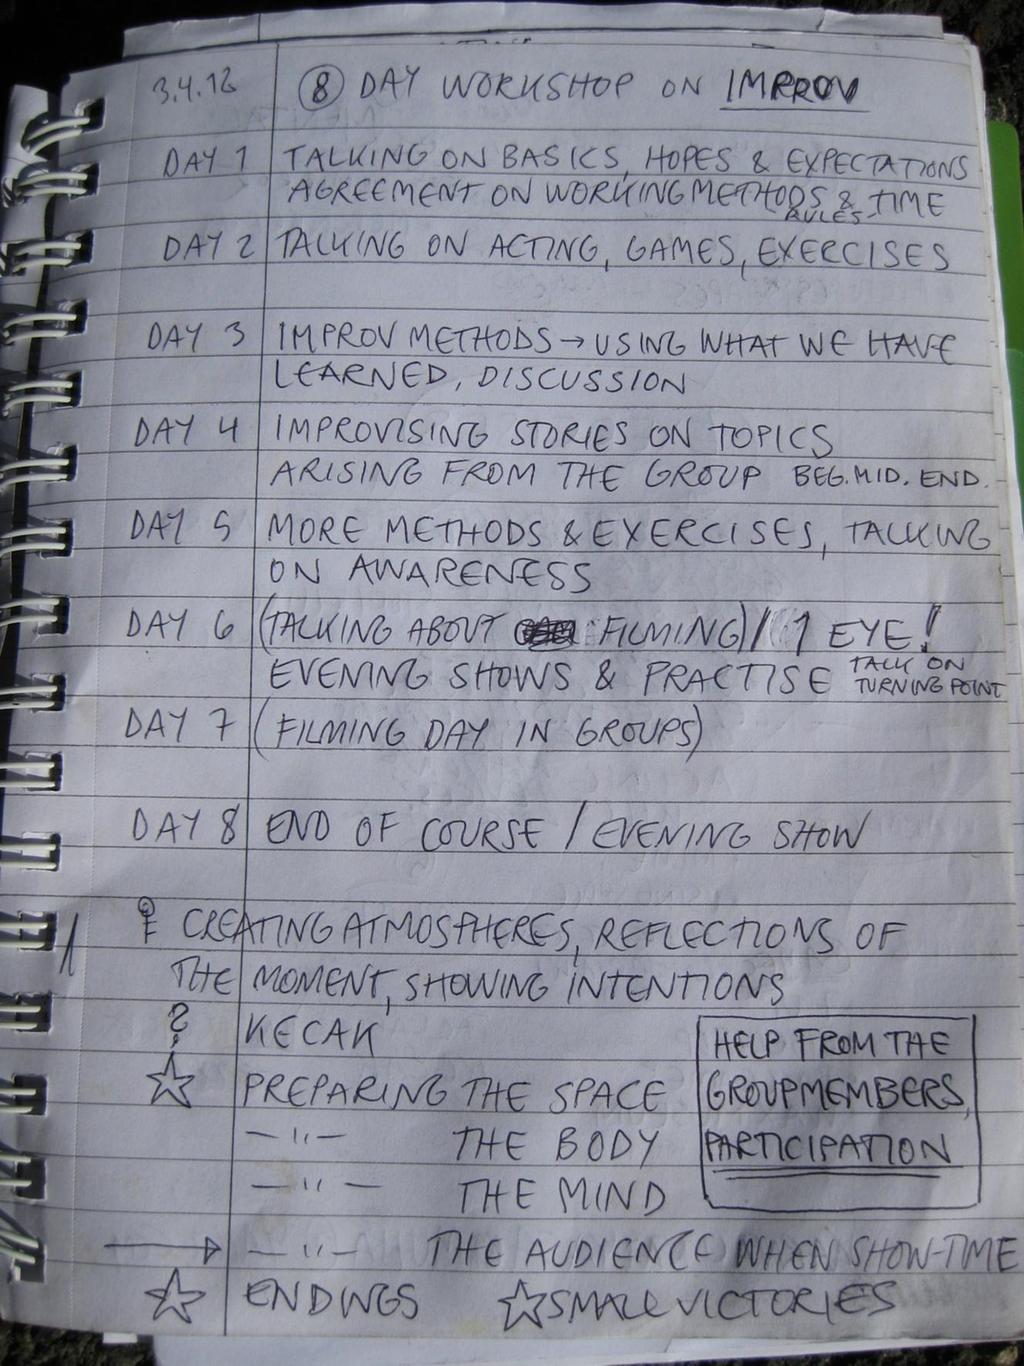 3.4.12 ⑧ DAY WORKSHOP ON IMPROV
DAY 1 TALKING ON BASICS, HOPES & EXPECTATIONS
AGREEMENT ON WORKING METHODS & TIME
RULES
DAY 2 TALKING ON ACTING, GAMES, EXERCISES
DAY 3 IMPROV METHODS → USING WHAT WE HAVE
LEARNED, DISCUSSION
DAY 4 IMPROVISING STORIES ON TOPICS
ARISING FROM THE GROUP BEG. MID. END.
DAY 5 MORE METHODS & EXERCISES, TALKING
ON AWARENESS
DAY 6 (TALKING ABOUT FILMING) / 1 EYE!
EVENING SHOWS & PRACTISE TALK ON
TURNING POINT
DAY 7 (FILMING DAY IN GROUPS)
DAY 8 END OF COURSE / EVENING SHOW
CREATING ATMOSPHERES, REFLECTIONS OF
THE MOMENT, SHOWING INTENTIONS
? KECAK
☆ PREPARING THE SPACE
— 〃 — THE BODY
— 〃 — THE MIND
→ — 〃 — THE AUDIENCE WHEN SHOW-TIME
☆ ENDINGS ☆ SMALL VICTORIES
HELP FROM THE
GROUPMEMBERS,
PARTICIPATION